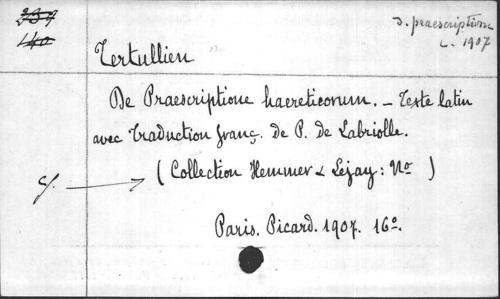 s. praescriptione
c. 1907
Tertullien
De Praescriptione haereticorum. — Texte latin
avec Traduction franç. de P. de Labriolle.
cf. → (Collection Hemmer & Lejay: No )
Paris. Picard. 1907. 16o.